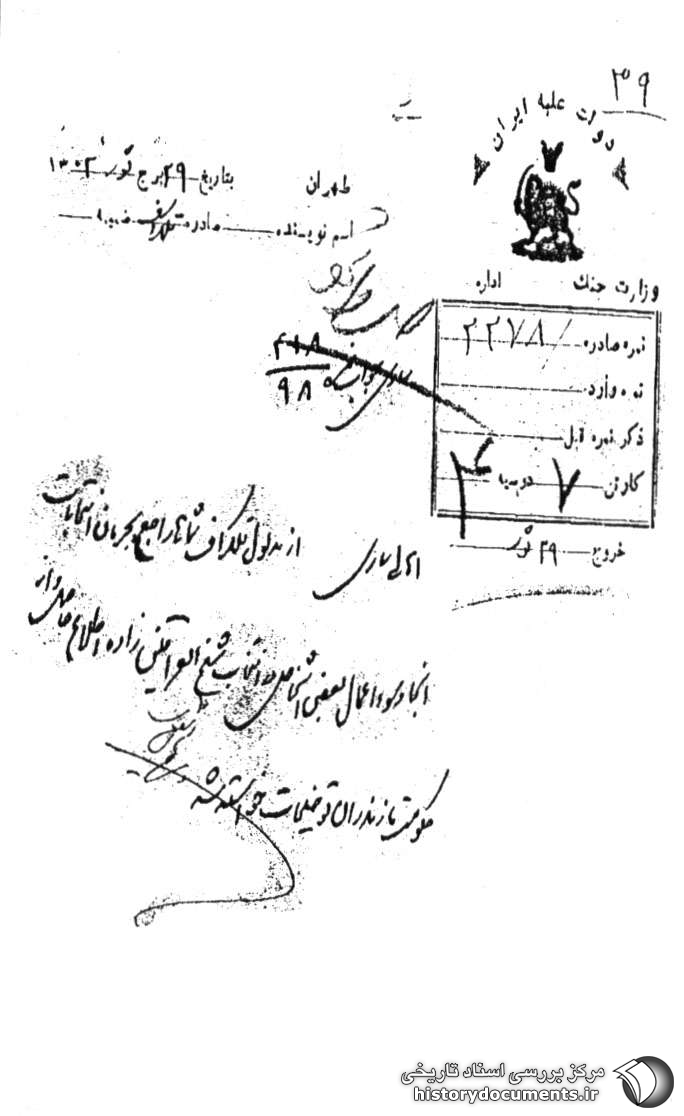 ۳۹
دولت علیه ایران
وزارت جنگ اداره
طهران بتاریخ ۲۹ برج ثور ۱۳۰۳
اسم نویسنده صادره تلگراف ضمیمه
نمره صادره ۲۲۷۸
نمره وارده
ذکر نمره قبل
کارتن ۷ دوسیه ۳
خروج ۲۹ ثور
ساری
۹۸
اهالی ساری از مدلول تلگراف شماها راجع بجریان انتخابات
آنجا و سوء اعمال بعضی اشخاص در انتخاب شیخ العراقین زاده اطلاع حاصل و از
حکومت مازندران توضیحات خواسته شد
مرکز بررسی اسناد تاریخی
historydocuments.ir